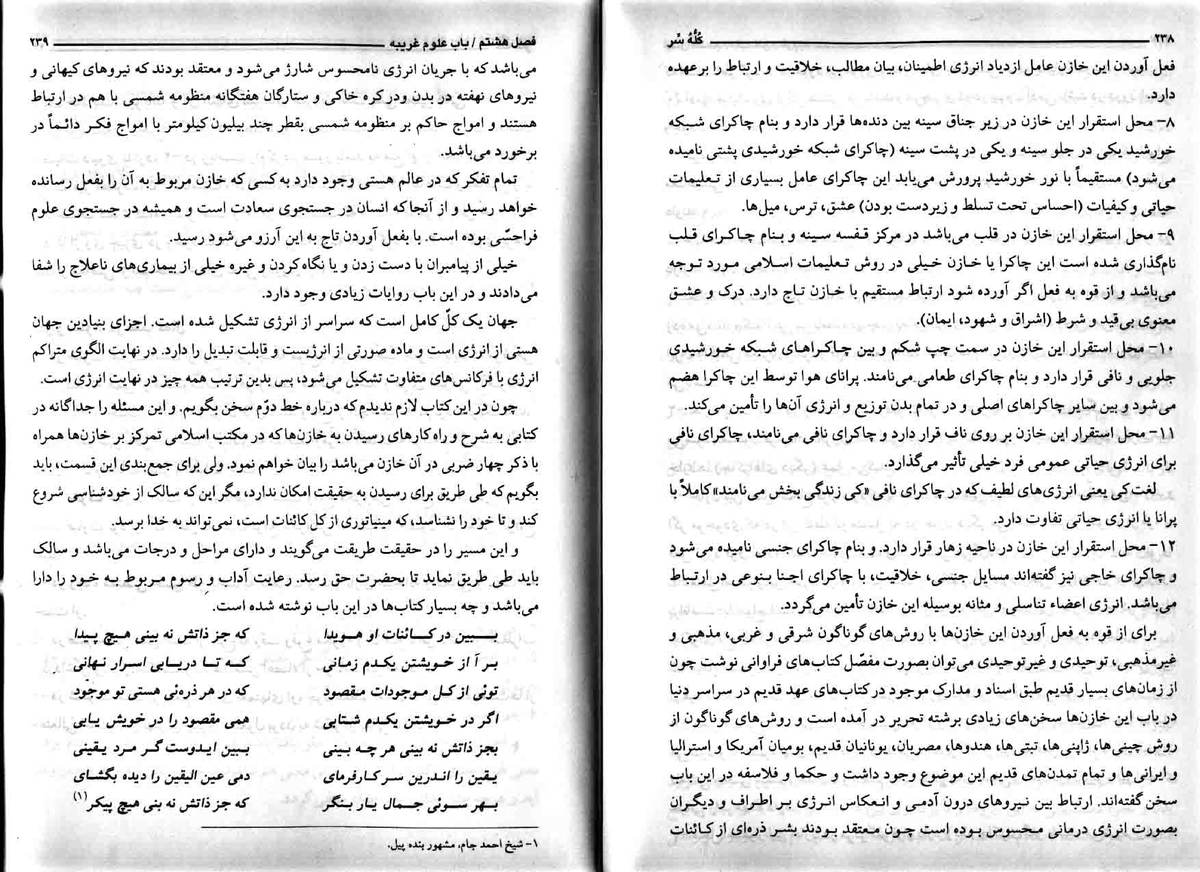 ۲۳۸ کُلُّهُ سِّر
فعل آوردن این خازن عامل ازدیاد انرژی اطمینان، بیان مطالب، خلاقیت و ارتباط را برعهده
دارد.
۸- محل استقرار این خازن در زیر جناق سینه بین دنده‌ها قرار دارد و بنام چاکرای شبکه
خورشید یکی در جلو سینه و یکی در پشت سینه (چاکرای شبکه خورشیدی پشتی نامیده
می‌شود) مستقیماً با نور خورشید پرورش می‌یابد این چاکرای عامل بسیاری از تعلیمات
حیاتی و کیفیات (احساس تحت تسلط و زیردست بودن) عشق، ترس، میل‌ها.
۹- محل استقرار این خازن در قلب می‌باشد در مرکز قفسه سینه و بنام چاکرای قلب
نام‌گذاری شده است این چاکرا یا خازن خیلی در روش تعلیمات اسلامی مورد توجه
می‌باشد و از قوه به فعل اگر آورده شود ارتباط مستقیم با خازن تاج دارد. درک و عشق
معنوی بی‌قید و شرط (اشراق و شهود، ایمان).
۱۰- محل استقرار این خازن در سمت چپ شکم و بین چاکراهای شبکه خورشیدی
جلویی و نافی قرار دارد و بنام چاکرای طعامی می‌نامند. پرانای هوا توسط این چاکرا هضم
می‌شود و بین سایر چاکراهای اصلی و در تمام بدن توزیع و انرژی آن‌ها را تأمین می‌کند.
۱۱- محل استقرار این خازن بر روی ناف قرار دارد و چاکرای نافی می‌نامند، چاکرای نافی
برای انرژی حیاتی عمومی فرد خیلی تأثیر می‌گذارد.
لغت کی یعنی انرژی‌های لطیف که در چاکرای نافی «کی زندگی بخش می‌نامند» کاملاً با
پرانا یا انرژی حیاتی تفاوت دارد.
۱۲- محل استقرار این خازن در ناحیه زهار قرار دارد. و بنام چاکرای جنسی نامیده می‌شود
و چاکرای خاجی نیز گفته‌اند مسایل جنسی، خلاقیت، با چاکرای اجنا بنوعی در ارتباط
می‌باشد. انرژی اعضاء تناسلی و مثانه بوسیله این خازن تأمین می‌گردد.
برای از قوه به فعل آوردن این خازن‌ها با روش‌های گوناگون شرقی و غربی، مذهبی و
غیرمذهبی، توحیدی و غیرتوحیدی می‌توان بصورت مفصّل کتاب‌های فراوانی نوشت چون
از زمان‌های بسیار قدیم طبق اسناد و مدارک موجود در کتاب‌های عهد قدیم در سراسر دنیا
در باب این خازن‌ها سخن‌های زیادی برشته تحریر در آمده است و روش‌های گوناگون از
روش چینی‌ها، ژاپنی‌ها، تبتی‌ها، هندوها، مصریان، یونانیان قدیم، بومیان آمریکا و استرالیا
و ایرانی‌ها و تمام تمدن‌های قدیم این موضوع وجود داشت و حکما و فلاسفه در این باب
سخن گفته‌اند. ارتباط بین نیروهای درون آدمی و انعکاس انرژی بر اطراف و دیگران
بصورت انرژی درمانی محسوس بوده است چون معتقد بودند بشر ذره‌ای از کائنات
فصل هشتم / باب علوم غریبه ۲۳۹
می‌باشد که با جریان انرژی نامحسوس شارژ می‌شود و معتقد بودند که نیروهای کیهانی و
نیروهای نهفته در بدن ودر کره خاکی و ستارگان هفتگانه منظومه شمسی با هم در ارتباط
هستند و امواج حاکم بر منظومه شمسی بقطر چند بیلیون کیلومتر با امواج فکر دائماً در
برخورد می‌باشد.
تمام تفکر که در عالم هستی وجود دارد به کسی که خازن مربوط به آن را بفعل رسانده
خواهد رسید و از آنجا که انسان در جستجوی سعادت است و همیشه در جستجوی علوم
فراحسّی بوده است. با بفعل آوردن تاج به این آرزو می‌شود رسید.
خیلی از پیامبران با دست زدن و یا نگاه کردن و غیره خیلی از بیماری‌های ناعلاج را شفا
می‌دادند و در این باب روایات زیادی وجود دارد.
جهان یک کلّ کامل است که سراسر از انرژی تشکیل شده است. اجزای بنیادین جهان
هستی از انرژی است و ماده صورتی از انرژیست و قابلت تبدیل را دارد. در نهایت الگوی متراکم
انرژی با فرکانس‌های متفاوت تشکیل می‌شود، پس بدین ترتیب همه چیز در نهایت انرژی است.
چون در این کتاب لازم ندیدم که درباره خط دوّم سخن بگویم. و این مسئله را جداگانه در
کتابی به شرح و راه کارهای رسیدن به خازن‌ها که در مکتب اسلامی تمرکز بر خازن‌ها همراه
با ذکر چهار ضربی در آن خازن می‌باشد را بیان خواهم نمود. ولی برای جمع‌بندی این قسمت، باید
بگویم که طی طریق برای رسیدن به حقیقت امکان ندارد، مگر این که سالک از خودشناسی شروع
کند و تا خود را نشناسد، که مینیاتوری از کل کائنات است، نمی‌تواند به خدا برسد.
و این مسیر را در حقیقت طریقت می‌گویند و دارای مراحل و درجات می‌باشد و سالک
باید طی طریق نماید تا بحضرت حق رسد. رعایت آداب و رسوم مربوط به خود را دارا
می‌باشد و چه بسیار کتاب‌ها در این باب نوشته شده است.
ببین در کائنات او هویدا که جز ذاتش نه بینی هیچ پیدا
بر آ از خویشتن یکدم زمانی که تا دریابی اسرار نهانی
توئی از کل موجودات مقصود که در هر ذره‌ئی هستی تو موجود
اگر در خویشتن یکدم شتابی همی مقصود را در خویش یابی
بجز ذاتش نه بینی هر چه بینی ببین ایدوست گر مرد یقینی
یقین را اندرین سر کارفرمای دمی عین الیقین را دیده بگشای
بهر سوئی جمال یار بنگر که جز ذاتش نه بنی هیچ پیکر(۱)
۱- شیخ احمد جام، مشهور بنده پیل.